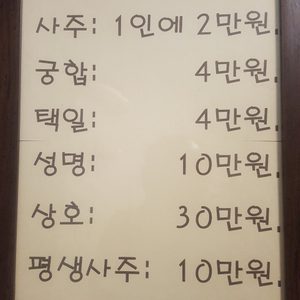 사주: 1인에 2만원.
궁합: 4만원.
택일: 4만원.
성명: 10만원.
상호: 30만원.
평생사주: 10만원.